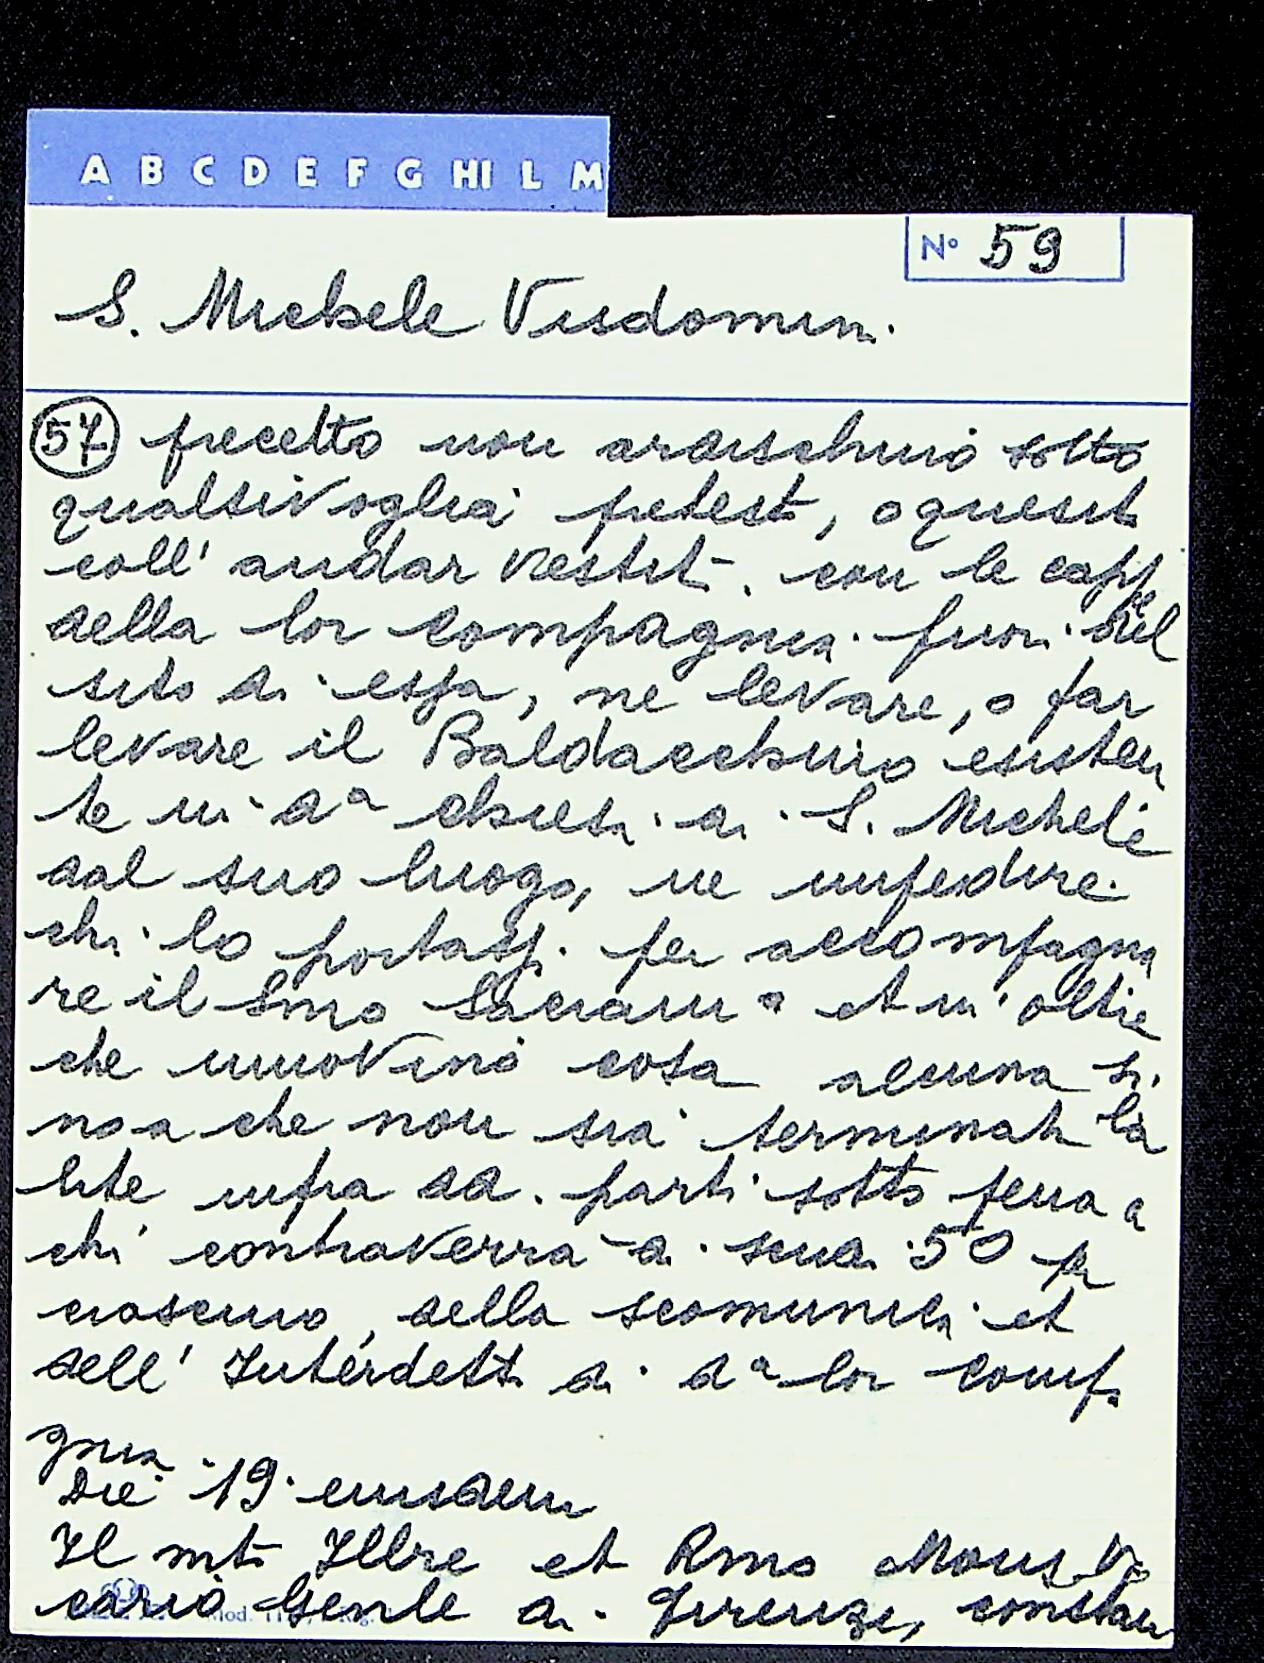 A B C D E F G HI L M
N° 59
S. Michele Visdomini
57 precetto non ardischino sotto
qualsivoglia pretesto, o quesito
coll' andar vestiti con le cappe
della lor compagnia fuori del
sito di essa, ne levare, o far
levare il Baldacchino esisten
te in da chiesa di S. Michele
dal suo luogo, ne impedire
chi lo portassi per accompagna
re il Smo Sacramo et in oltre
che innovino cosa alcuna si
no a che non sia terminata la
lite infra dd. parti sotto pena a
chi contraverrà di scudi 50 pr
ciascuno, della scomunica et
dell' Interdetto di da lor compa
gnia
Die 19 eiusdem
Il mto Illre et Rmo Mons Vi
cario Genle di Firenze, constan